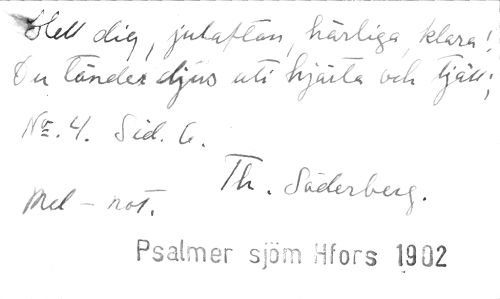 Hell dig, julafton, härliga, klara!
Du tänder ljus uti hjärta och tjäll;
No. 4. Sid. 6.
Th. Söderberg.
Mel-not.
Psalmer sjöm Hfors 1902